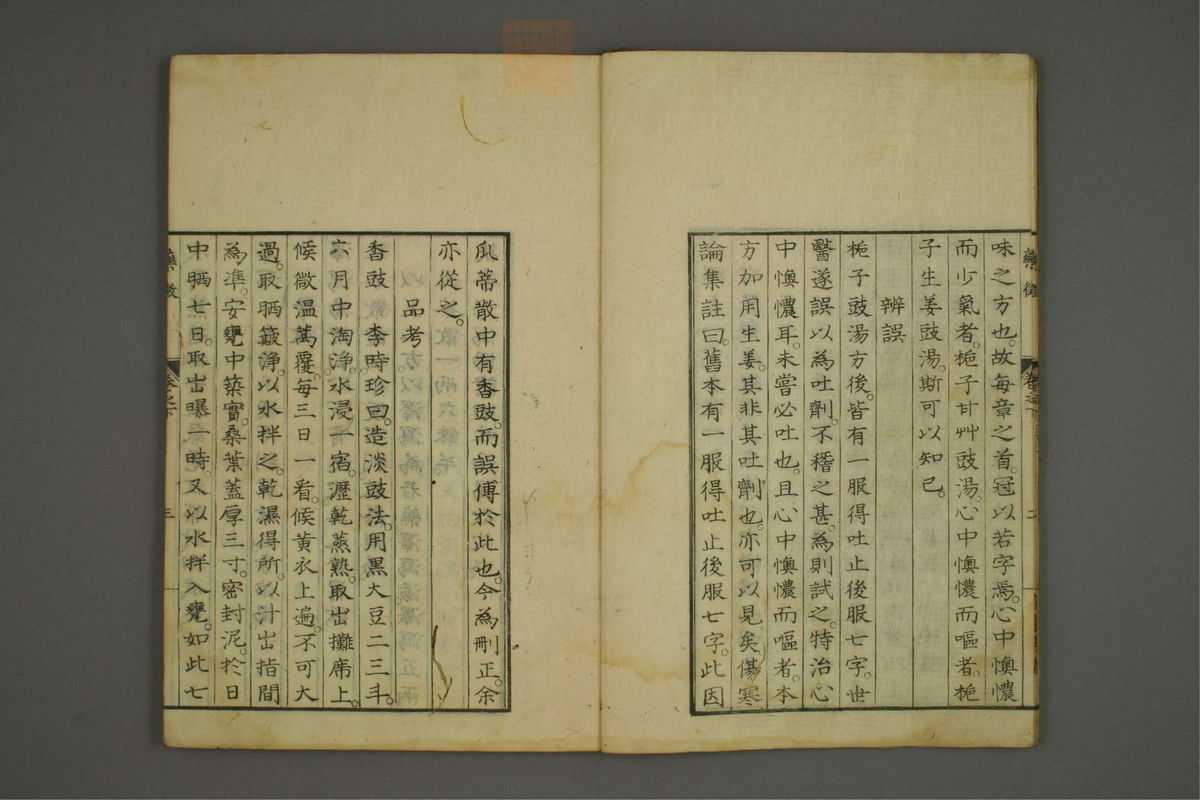 味之方也。故每章之首。冠以若字焉。心中懊憹
而少氣者。梔子甘艸豉湯。心中懊憹而嘔者。梔
子生姜豉湯。斯可以知已。
辨誤
梔子豉湯方後。皆有一服得吐止後服七字。世
醫遂誤以為吐劑。不稽之甚。為則試之。特治心
中懊憹耳。未嘗必吐也。且心中懊憹而嘔者。本
方加用生姜。其非其吐劑也。亦可以見矣。傷寒
論集註曰。舊本有一服得吐止後服七字。此因
瓜蒂散中有香豉。而誤傳於此也。今為刪正。余
亦從之。
品考
香豉 李時珍曰。造淡豉法。用黑大豆二三斗。
六月中淘淨。水浸一宿。瀝乾蒸熟。取出攤席上。
候微溫蒿覆。每三日一看。候黄衣上遍。不可大
過。取晒簸淨。以水拌之。乾濕得所。以汁出指間
為準。安甕中築實。桑葉蓋厚三寸。密封泥。於日
中晒七日。取出曝一時。又以水拌入甕。如此七
藥徵 卷之下 三